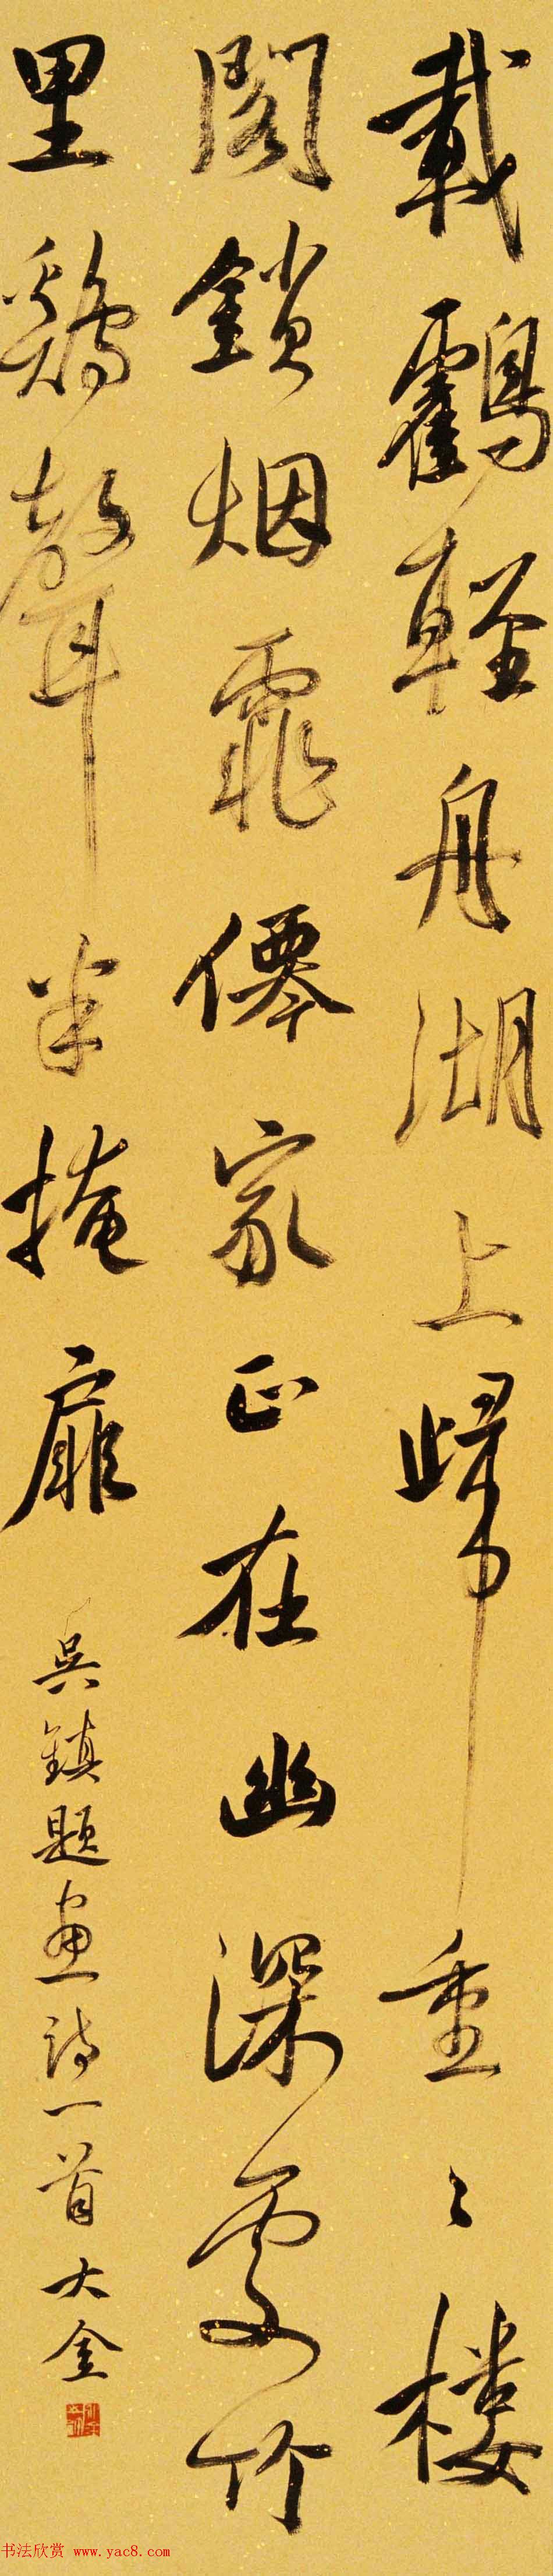 載鸖輕舟湖上歸重〻楼
閣鎖烟霏僊家正在幽深處竹
里鷄聲半掩扉
吳鎮題畫诗一首大金
书法欣赏 www.yac8.com